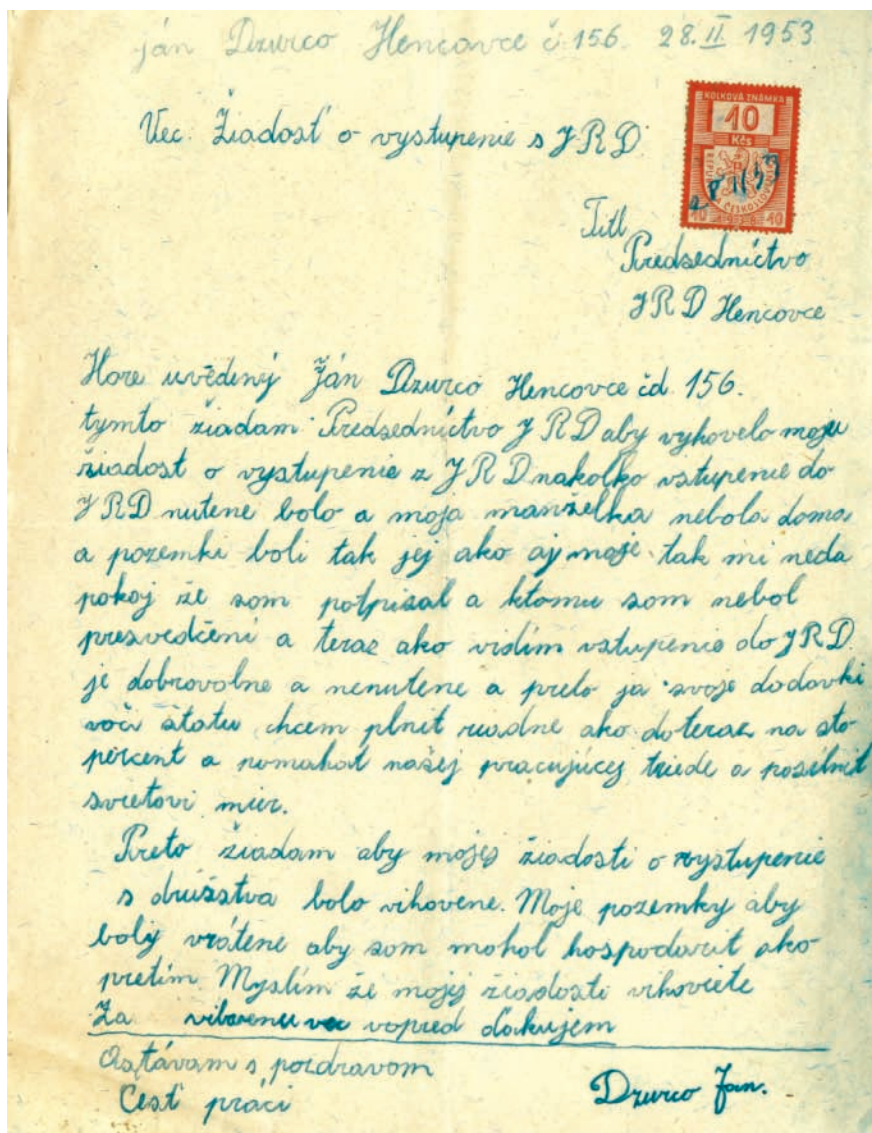 ján Dzurco Hencovce č 156. 28.II 1953
KOLKOVÁ ZNÁMKA
10
Kčs
Vec. Žiadosť o vystupenie s JRD.
28 II 53
10 10
Titl
Predsedníctvo
JRD Hencovce
Hore uvědený Ján Dzurco Hencovce čd. 156.
tymto žiadam Predsedníctvo JRD aby vyhovelo moju
žiadost o vystupenie z JRD nakolko vstupenie do
JRD nutene bolo a moja manželka nebola doma
a pozemki boli tak jej ako aj moje tak mi neda
pokoj že som potpisal a ktomu som nebol
presvedčeni a teraz ako vidím vstupenie do JRD.
je dobrovolne a nenutene a preto ja svoje dodavki
voči štatu chcem plnit riadne ako doteraz na sto
percent a pomahat našej pracujúcej triede a posilnit
svetovi mier.
Preto žiadam aby mojej žiadosti o vystupenie
s družstva bolo vihovene. Moje pozemky aby
bolý vrátene aby som mohol hospodarit ako
pretim. Myslím že mojej žiadosti vihoviete
Za vopred ďakujem
Ostávam s pozdravom
Česť práci Dzurco Jan.